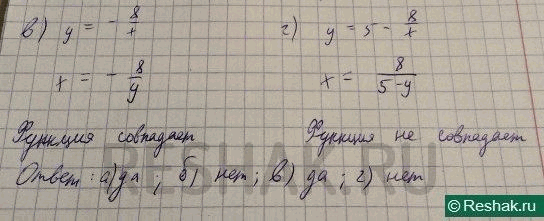 в) y = - 8/x г) y = 5 - 8/x
x = - 8/y x = 8/(5-y)
Функция совпадает Функция не совпадает
Ответ: а) да; б) нет; в) да; г) нет
RESHAK.RU
© Reshak.ru